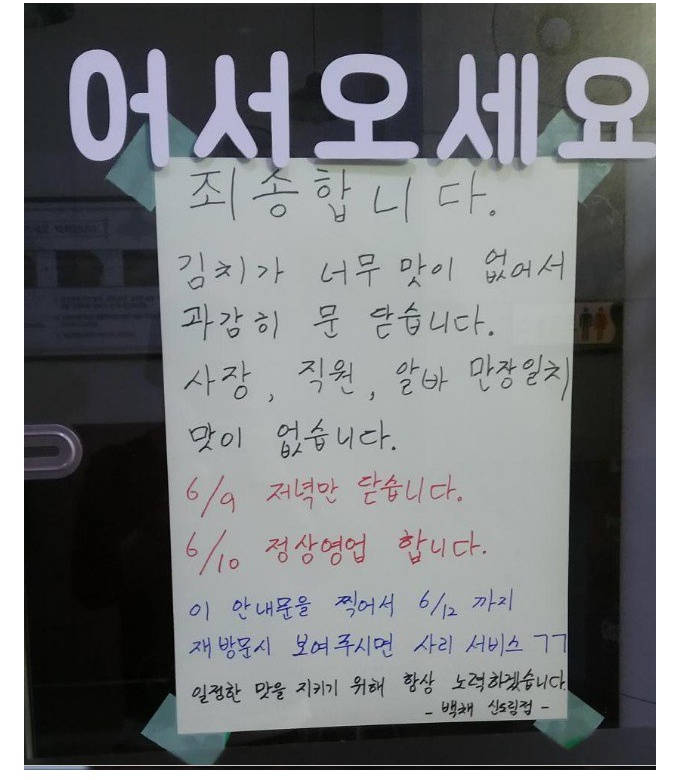 어서오세요
죄송합니다.
김치가 너무 맛이 없어서
과감히 문 닫습니다.
사장, 직원, 알바 만장일치
맛이 없습니다.
6/9 저녁만 닫습니다.
6/10 정상영업 합니다.
이 안내문을 찍어서 6/12 까지
재방문시 보여주시면 사리 서비스 ㄱㄱ
일정한 맛을 지키기 위해 항상 노력하겠습니다.
- 백채 신도림점 -